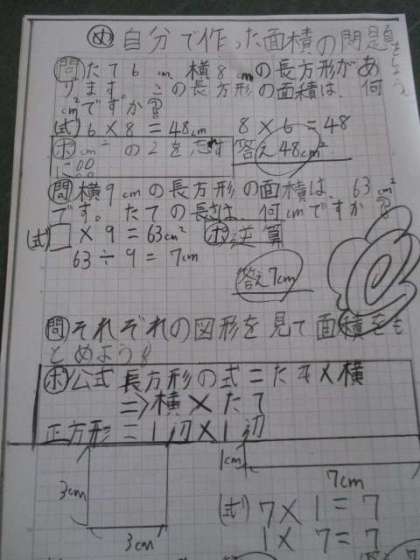 め 自分で作った面積の問題をとこう
問 たて6cm 横8cmの長方形があ
ります。この長方形の面積は、何
cm²ですか
(式) 6×8=48cm 8×6=48
ポ cm²の2を忘れずに 答え48cm²
問 横9cmの長方形の面積は、63cm²
です。たての長さは、何cmですか
(式) □×9=63cm² ポ 逆算
63÷9=7cm
答え7cm
問 それぞれの図形を見て面積をも
とめよう!
ポ 公式 長方形の式=たて×横
⇒横×たて
正方形=1辺×1辺
1cm
3cm
7cm
(式) 7×1=7
3cm
1×7=7